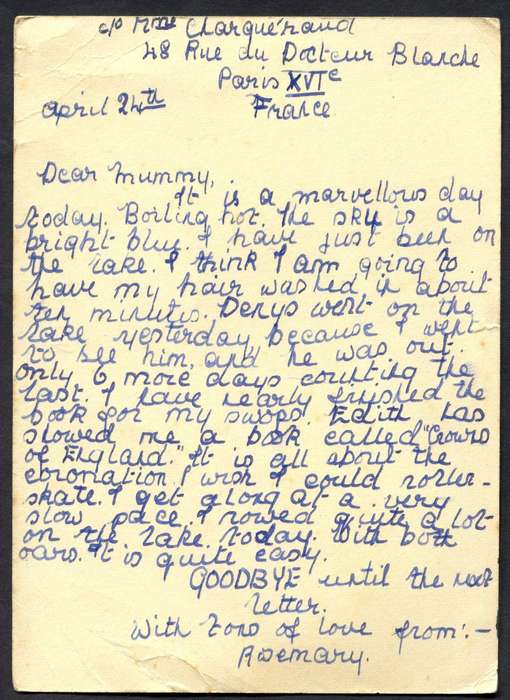 c/o Mme Charguéraud
48 Rue du Docteur Blanche
Paris XVIe
April 24th France
Dear Mummy,
It is a marvellous day
today. Boiling hot. The sky is a
bright blue. I have just been on
the lake. I think I am going to
have my hair washed in about
ten minutes. Denys went on the
lake yesterday because I went
to see him, and he was out.
only 6 more days counting the
last. I have nearly finished the
book for my swops. Edith has
slowed me a book called "Crowns
of England." It is all about the
coronation. I wish I could roller-
skate. I get along at a very
slow pace. I rowed quite a lot
on the lake today. With both
oars. It is quite easy.
GOODBYE until the next
letter.
With tons of love from:-
Rosemary.